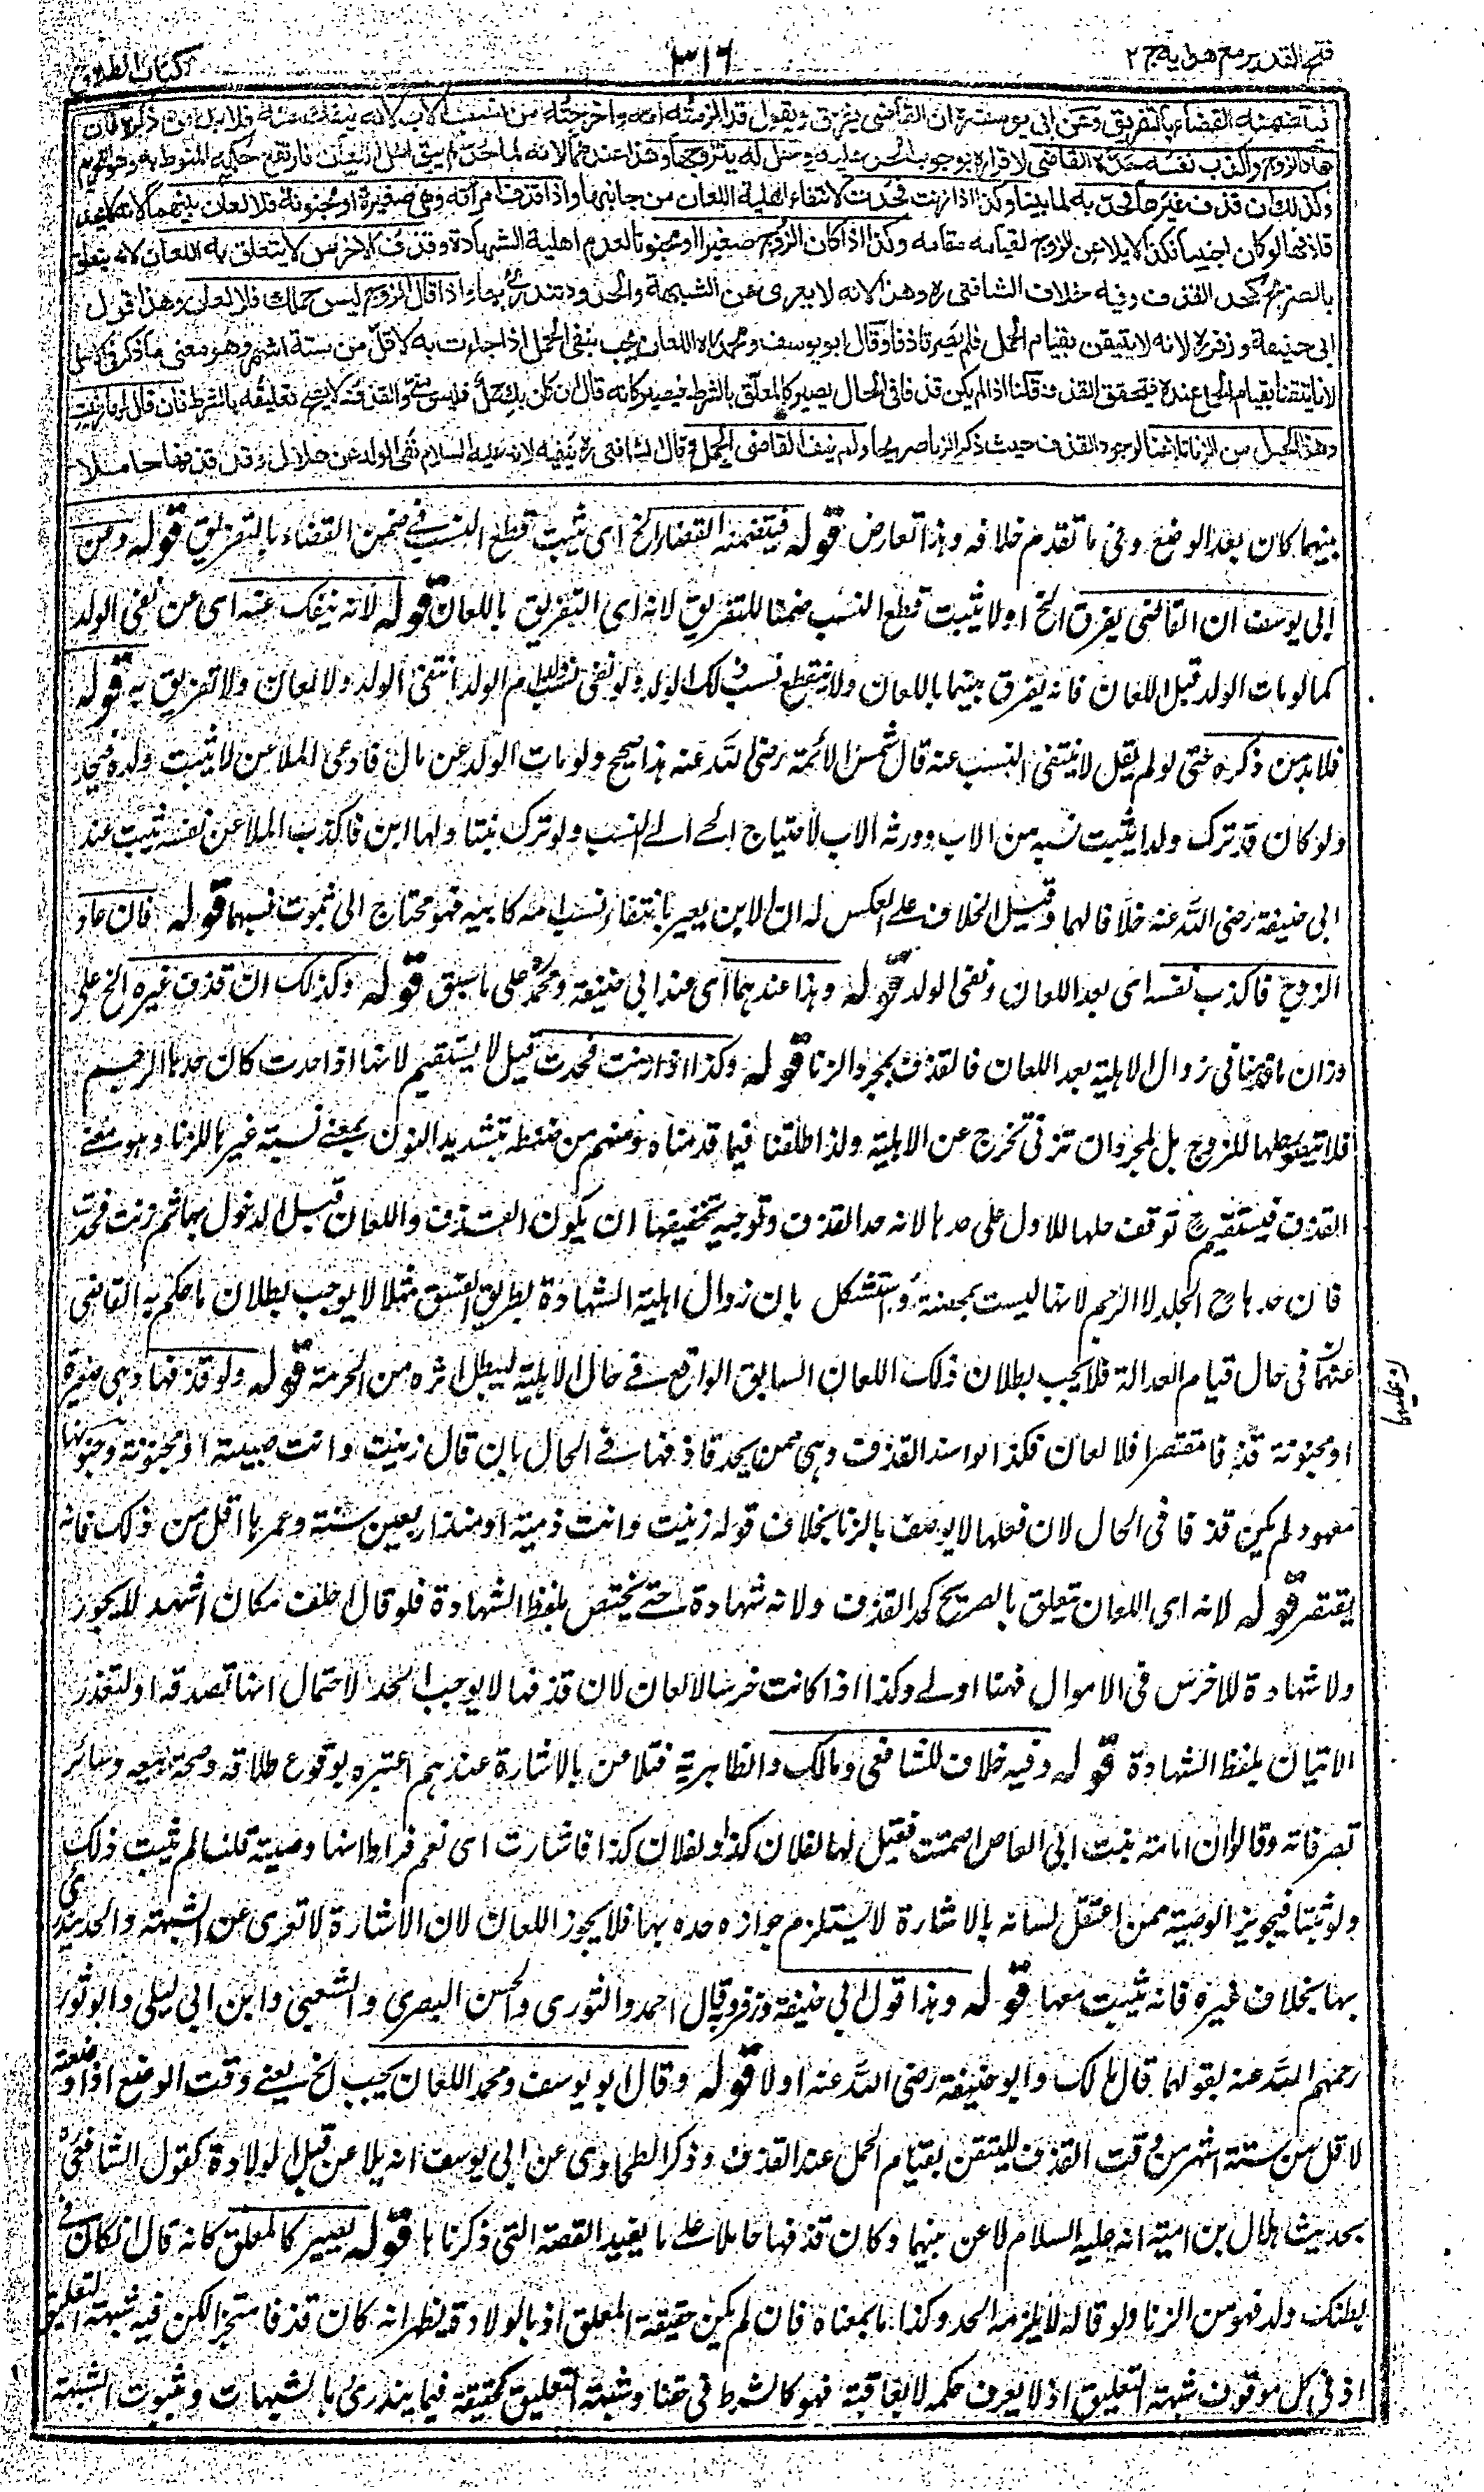 فتح القدير مع هدايه ج ٢
٣١٦
كتاب الطلاق
فيتضمنه القضاء بالتفريق وعن ابى يوسف ره ان القاضى يفرق ويقول قد الزمته امه واخرجته من نسب الاب لانه ينفك عنه فلا بد من ذكره فان
عاد الزوج واكذب نفسه حده القاضى لاقراره بوجوب الحد عليه وحل له ان يتزوجها وهذا عندهما لانه لما حد لم يبق اهل اللعان فارتفع حكمه المنوط به وهو التحريم
وكذلك ان قذف غيرها فحد به لما بينا وكذا اذا زنت فحدت لانتفاء اهلية اللعان من جانبها واذا قذف امرأته وهى صغيرة او مجنونة فلا لعان بينهما لانه لا يحد
قاذفها لو كان اجنبيا فكذا لا يلاعن الزوج لقيامه مقامه وكذا اذا كان الزوج صغيرا او مجنونا لعدم اهلية الشهادة وقذف الاخرس لا يتعلق به اللعان لانه يتعلق
بالصريح كحد القذف وفيه خلاف الشافعى ره وهذا لانه لا يعرى عن الشبهة والحدود تندرئ بها واذا قال الزوج ليس حملك منى فلا لعان وهذا قول
ابى حنيفة وزفر ره لانه لا يتيقن بقيام الحمل فلم يصر قاذفا وقال ابو يوسف ومحمد ره اللعان يجب بنفى الحمل اذا جاءت به لاقل من ستة اشهر وهو معنى ما ذكر فى الاصل
لانا تيقنا بقيام الحمل عنده فيتحقق القذف قلنا اذا لم يكن قذفا فى الحال يصير كالمعلق بالشرط فيصير كانه قال ان كان بك حمل فليس منى والقذف لا يصح تعليقه بالشرط فان قال لها زنيت
وهذا الحبل من الزنا تلاعنا لوجود القذف حيث ذكر الزنا صريحا ولم ينف القاضى الحمل وقال الشافعى ره ينفيه لانه عليه السلام نفى الولد عن هلال وقد قذفها حاملا
بينهما كان بعد الوضع وفى ما تقدم خلافه وهذا تعارض قوله فيتضمنه القضاء الخ اى يثبت قطع النسب فى ضمن القضاء بالتفريق قوله وعن
ابى يوسف ان القاضى يفرق الخ اولا يثبت قطع النسب ضمنا للتفريق لانه اى التفريق باللعان قوله لانه ينفك عنه اى عن نفى الولد
كما لو مات الولد قبل اللعان فانه يفرق بينهما باللعان ولا ينقطع نسب ذلك الولد ولو نفى نسب ام الولد انتفى الولد ولا لعان ولا تفريق به قوله
فلا بد من ذكره حتى لو لم يقل لا ينتفى النسب عنه قال شمس الائمة رضى الله عنه هذا صحيح ولو مات الولد عن مال فادعى الملاعن لا يثبت ولده فيحد
ولو كان قد ترك ولدا يثبت نسبه من الاب وورثه الاب لاحتياج الحى الى النسب ولو ترك بنتا ولها ابن فاكذب الملاعن نفسه يثبت عند
ابى حنيفة رضى الله عنه خلافا لهما وقيل الخلاف على العكس له ان الابن يعير بانتفاء نسب امه كابيه فهو محتاج الى ثبوت نسبهما قوله فان عاد
الزوج فاكذب نفسه اى بعد اللعان ونفى الولد قوله وهذا عندهما اى عند ابى حنيفة ومحمد على ما سبق قوله وكذلك ان قذف غيره الخ على
وزان ما قدمنا فى زوال الاهلية بعد اللعان فالقذف بمجرد الزنا قوله وكذا اذا زنت فحدت قيل لا يستقيم لانها اذا حدت كان حدها الرجم
فلا يتصور حلها للزوج بل بمجرد ان تزنى تخرج عن الاهلية ولذا اطلقنا فيما قدمناه ومنهم من ضبطه بتشديد النون بمعنى نسبة غيرها للزنا وهو معنى
القذف فيستقيم ح توقف حلها للاول على حدها لانه حد القذف وتوجيه تخفيفها ان يكون القذف واللعان قبل الدخول بها ثم زنت فحدت
فان حدها ح الجلد لا الرجم لانها ليست بمحصنة واستشكل بان زوال اهلية الشهادة بطريق الفسق مثلا لا يوجب بطلان ما حكم به القاضى
عنها فى حال قيام العدالة فلا يجب بطلان ذلك اللعان السابق الواقع فى حال الاهلية ليبطل اثره من الحرمة قوله ولو قذفها وهى صغيرة
او مجنونة قذفا مقتصرا فلا لعان فكذا لو اسند القذف وهى ممن يحد قاذفها فى الحال بان قال زنيت وانت صبية او مجنونة وجنونها
معهود لم يكن قذفا فى الحال لان فعلها لا يوصف بالزنا بخلاف قوله زنيت وانت ذمية او منذ اربعين سنة وعمرها اقل من ذلك فانه
يقتصر قوله لانه اى اللعان يتعلق بالصريح كحد القذف ولانه شهادة حتى يختص بلفظ الشهادة فلو قال احلف مكان اشهد لا يجوز
ولا شهادة للاخرس فى الاموال فهنا اولى وكذا اذا كانت خرساء لا لعان لان قذفها لا يوجب الحد لاحتمال انها تصدقه او لتعذر
الاتيان بلفظ الشهادة قوله وفيه خلاف للشافعى ومالك والظاهرية فتلاعن بالاشارة عندهم اعتبره بوقوع طلاقه وصحة بيعه وسائر
تصرفاته وقالوا ان امامة بنت ابى العاص اصمتت فقيل لها لفلان كذا ولفلان كذا فاشارت اى نعم فراوا انها وصية قلنا لم يثبت ذلك
ولو ثبتا فتجويز الوصية ممن اعتقل لسانه بالاشارة لا يستلزم جوازه حده بها فلا يجوز اللعان لان الاشارة لا تعرى عن الشبهة والحد يندرئ
بها بخلاف غيره فانه يثبت معها قوله وهذا قول ابى حنيفة وزفر وقال احمد والثورى والحسن البصرى والشعبى وابن ابى ليلى وابو ثور
رحمهم الله عنه بقولهما قال مالك وابو حنيفة رضى الله عنه اولا قوله وقال ابو يوسف ومحمد اللعان يجب الخ يعنى وقت الوضع اذا وضعته
لاقل من ستة اشهر من وقت القذف للتيقن بقيام الحمل عند القذف وذكر الطحاوى عن ابى يوسف انه يلاعن قبل الولادة كقول الشافعى
بحديث هلال بن امية انه عليه السلام لاعن بينهما وكان قذفها حاملا على ما يفيد القصة التى ذكرناها قوله يصير كالمعلق كانه قال ان كان فى
بطنك ولد فهو من الزنا ولو قاله لا يلزمه الحد وكذا ما بمعناه فان لم يكن حقيقة المعلق اذ بالولادة يظهر انه كان قذفا منجزا لكن فيه شبهة التعليق
اذ فى كل موقوف شبهة التعليق اذ لا يعرف حكمه الا بعاقبته فهو كالشرط فى حقنا وشبهة التعليق كحقيقته فيما يندرئ بالشبهات وثبوت الشبهة